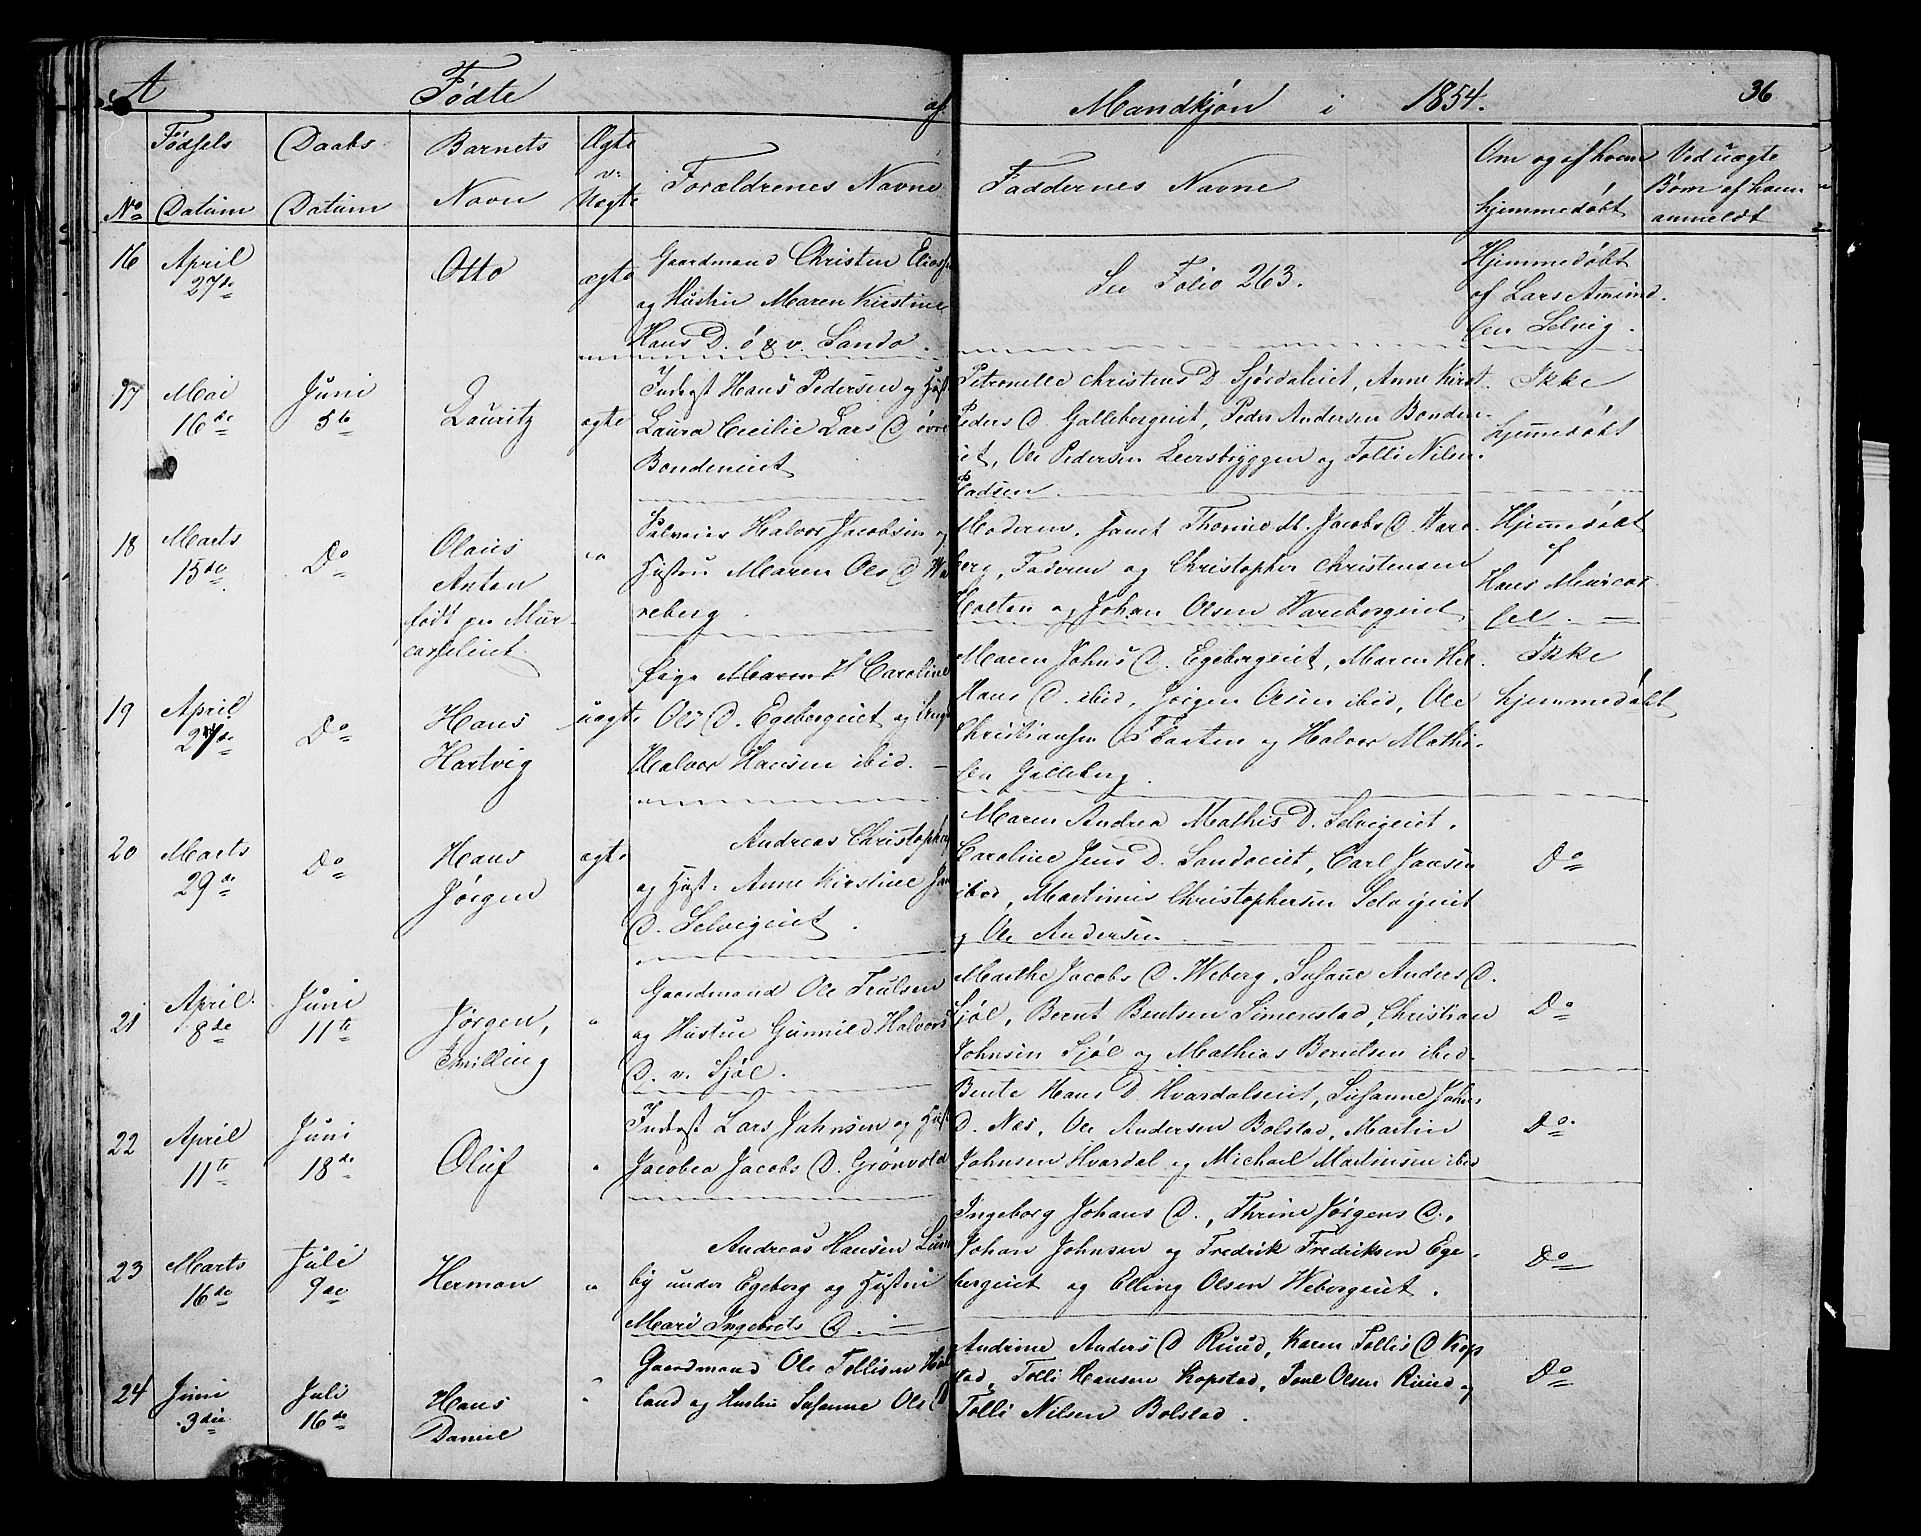 A Fødte af Mandkjøn i 1854. 36
No
Fødsels Datum
Daabs Datum
Barnets Navn
Ægte v. Uægte
Forældrenes Navne
Faddernes Navne
Om og af hvem hjemmedøbt
Ved uægte Børn af hvem anmeldt
16
April
27de
Otto
ægte
Gaardmand Christen Elias
og Hustru Maren Kirstine
Hans D. ø & v. Sando.
See Folio 263.
Hjemmedøbt
af Lars Amund
sen Selvig.
17
Mai
16de
Juni
5te
Lauritz
ægte
Inderst Hans Pedersen og Hust
Laura Cecilie Lars D øvre
Bondeneiet
Petronelle Christens D. Sjørdaleiet, Anne Kirst.
Peders D Gallebergeiet, Peder Andersen Bonden-
eiet, Ole Pedersen Leersbryggen og Tolli Nilsen
Pladsen
Ikke
hjemmedøbt
18
Marts
15de
Do
Olaus
Anton
født paa Mür-
casseleiet.
"
Halvor Jacobsen og
Hustru Maren Ols D Wa
reberg.
Moderen, Thorine M. Jacobs D. Ware
berg, Faderen og Christopher Christensen
Holten og Johan Olsen Warebergeiet
Hjemmedøbt
af
Hans Murcas
sel.
19
April
27de
Do
Hans
Hartvig
uægte
Pige Maren Caroline
Ols D. Egebergeiet og Ungk
Halvor Hansen ibid.
Maren Johns D. Egebergeiet, Maren Hel.
Hans D. ibid, Jørgen Olsen ibid, Ole
Christiansen Taasten og Halvor Mathi-
sen Galleberg.
Ikke
hjemmedøbt
20
Marts
29de
Do
Hans
Jørgen
ægte
Andreas Christopher
og Hust: Anne Kirstine Jans
D. Selvigeiet.
Maren Andrea Mathis D. Selvigeiet.
Caroline Jens D. Sandoeiet, Carl Jansen
ibid, Martinus Christophersen Selvigeiet
og Ole Andersen
Do
21
April
8de
Juni
11te
Jørgen,
Tvilling
"
Gaardmand Ole Trulsen
og Hustru Gunnild Halvors
D. v. Sjøl.
Marthe Jacobs D. Weberg, Susane Andres D.
Sjøl, Bernt Bentsen Simenstad, Christian
Johnsen Sjøl og Mathias Berntsen ibid
Do
22
April
11te
Juni
18de
Oluf
"
Inderst Lars Jahnsen og Hust
Jacobea Jacobs D. Grønvold
Bente Hans D. Hvardalseiet, Susanne Johns
D. Næs, Ole Andersen Bolstad, Martin
Johnsen Hvardal og Michael Martinsen ibid
Do
23
Marts
16de
Juli
9de
Herman
"
Andreas Hansen Lun
by under Egeberg og Hustru
Mari Ingebrets D.
Ingeborg Johans D., Thrine Jørgens D.,
Johan Johnsen og Fredrik Fredriksen Ege-
bergeiet og Elling Olsen Webergeiet.
Do
24
Juni
3die
Juli
16de
Hans
Daniel
"
Gaardmand Ole Tollisen Hol
land og Hustru Susanne Ols D
Andrine Anders D Ruud, Karen Tollis D Kop
stad, Tolli Hansen Kopstad, Poul Olsen Ruud og
Tolli Nilsen Bolstad.
Do